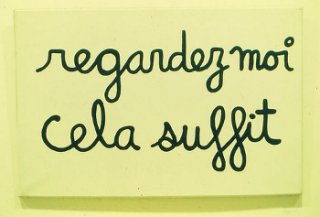 regardez moi
cela suffit